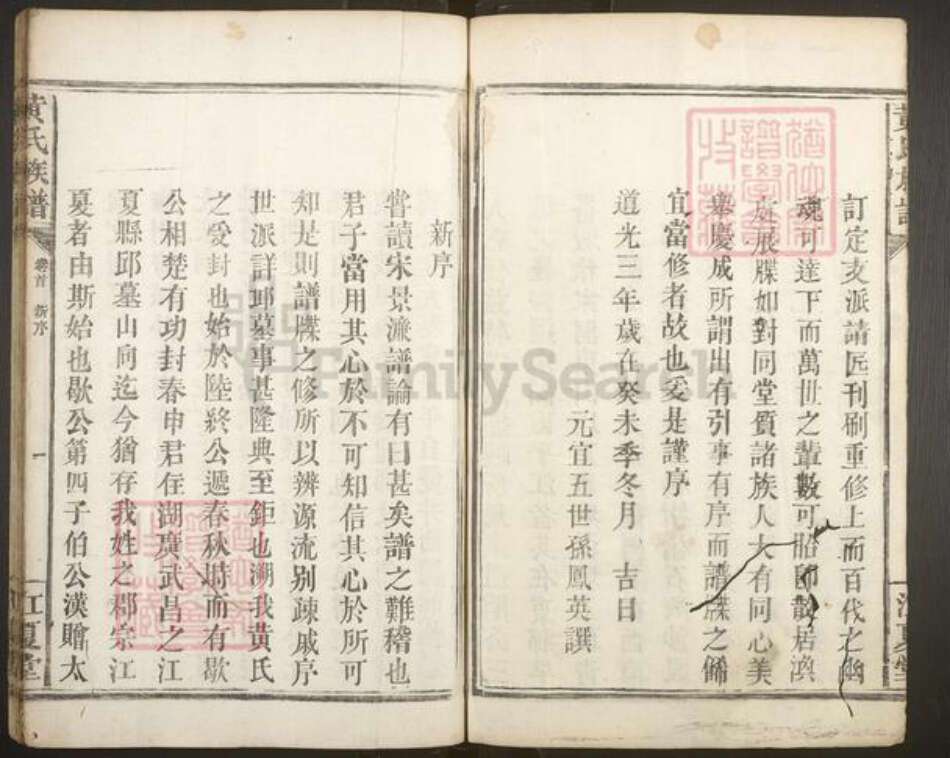 訂定支派請匠刊刷重修上而百代之幽
魂可達下而萬世之輩數可昭即散居渙
處展牒如對同堂質諸族人大有同心美
舉慶成所謂出有引事有序而譜牒之修
宜當修者故也爰是謹序
道光三年歲在癸未季冬月 吉日
元宜五世孫鳳英譔
新序
嘗讀宋景濂譜論有曰甚矣譜之難稽也
君子當用其心於不可知信其心於所可
知是則譜牒之修所以辨源流別疎戚序
世派詳邱墓事甚隆典至鉅也溯我黃氏
之受封也始於陸終公遞春秋時而有歇
公相楚有功封春申君在湖廣武昌之江
夏縣邱墓山向迄今猶存我姓之郡宗江
夏者由斯始也歇公第四子伯公漢贈太
黃氏族譜 卷首 新序 一 江夏堂
FamilySearch